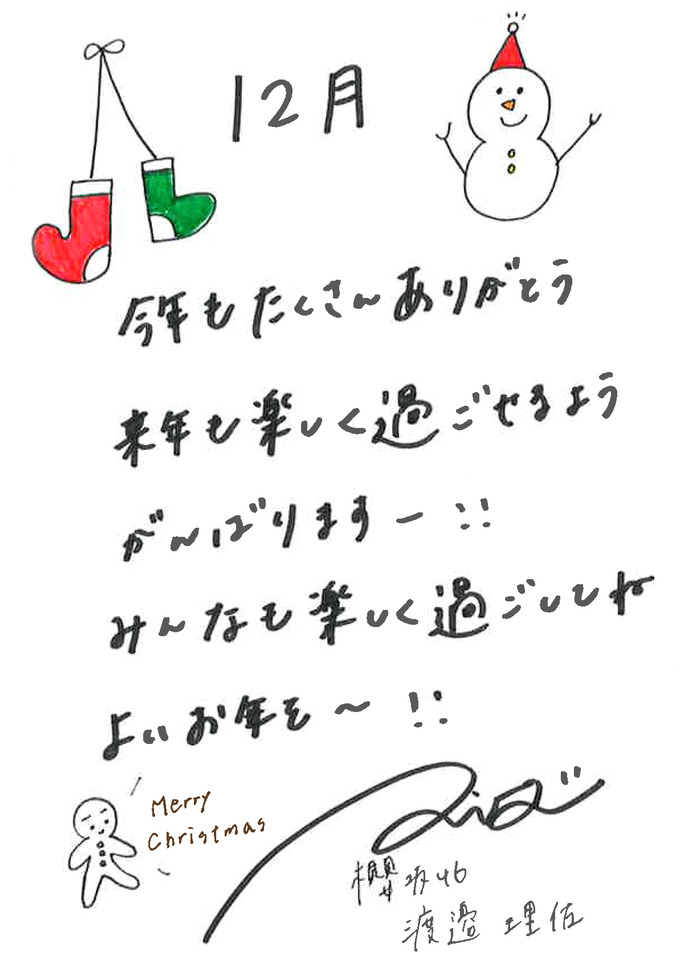 12月
今年もたくさんありがとう
来年も楽しく過ごせるよう
がんばりますー!!
みんなも楽しく過ごしてね
よいお年を〜!!
Merry
Christmas
櫻坂46
渡邉理佐